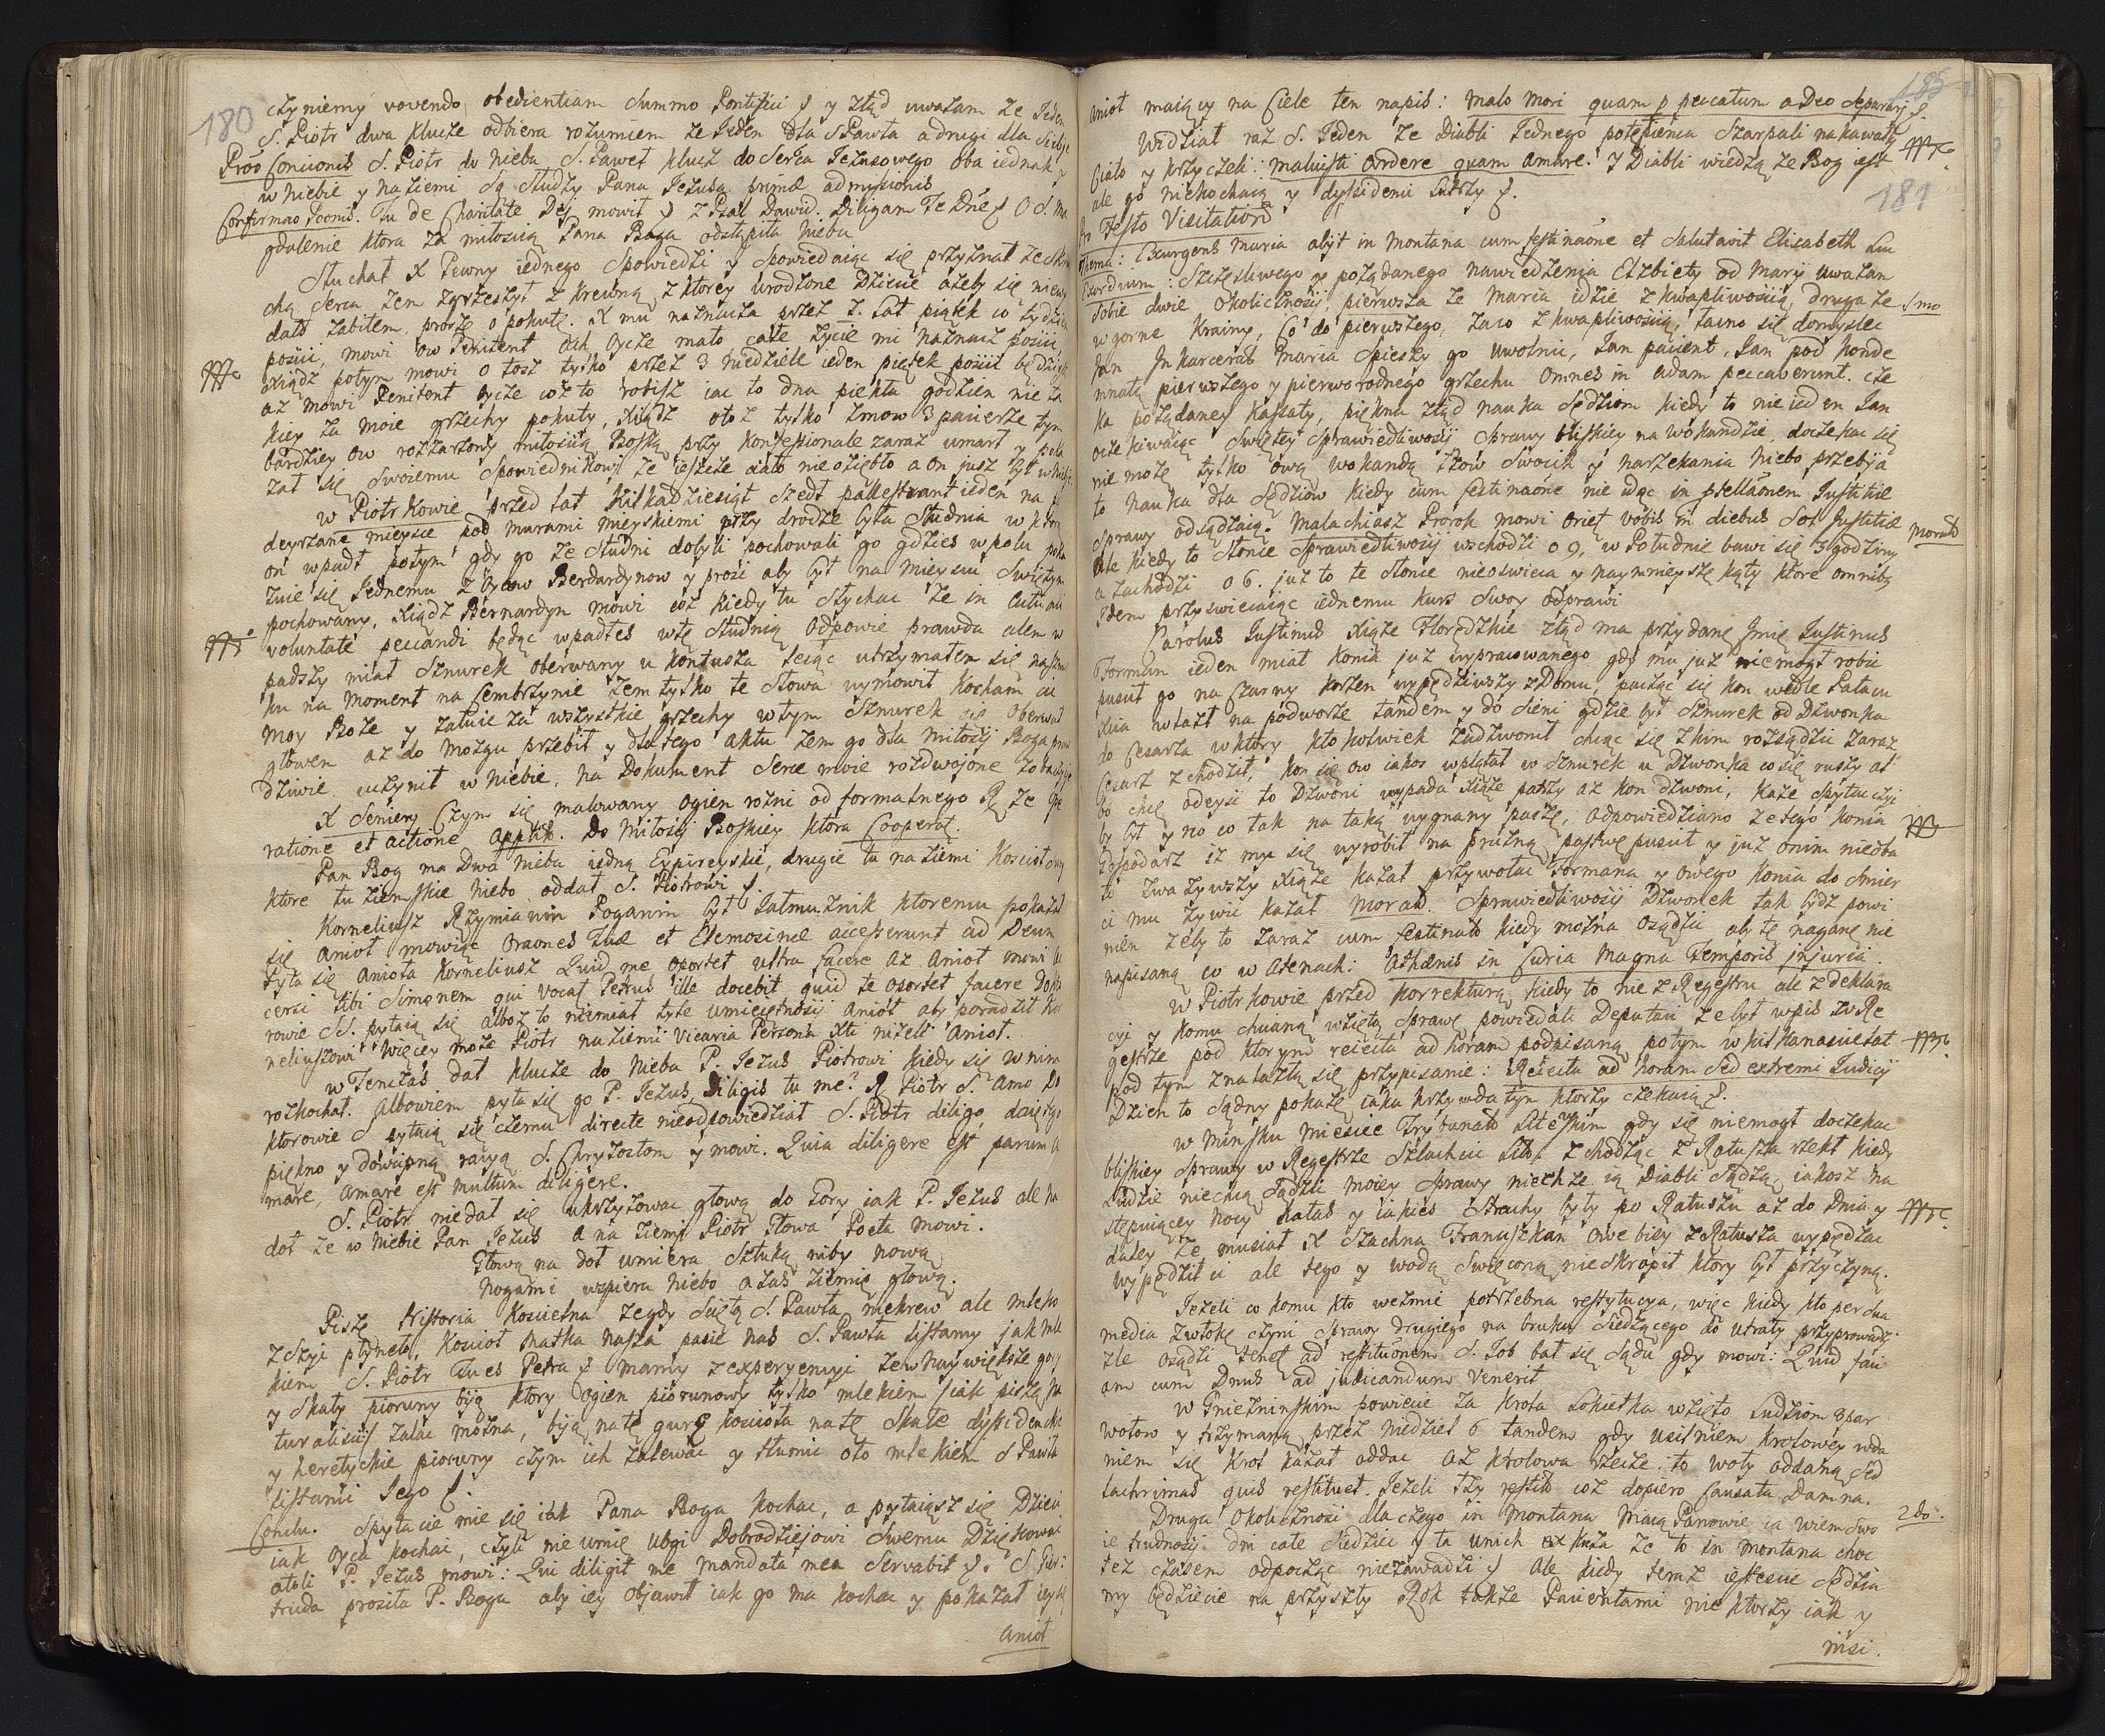 180
czyniemy vovendo obedientiam Summo Pontifici y ztąd uważam że Jeden
S. Piotr dwa klucze odbiera rozumiem że Jeden dla S Pawła a drugi dla Siebie
Pró Concionis S. Piotr do nieba S. Paweł klucz do Serca Jezusowego oba iednak y
w niebie y na ziemi Są Słudzy Pana Jezusa primæ admissionis
Confirmao Tu de Charitate Dej mowił z Psal Dawid. Diligam Te Dne O S. Ma
gdalenie ktora za miłością Pana Boga odstąpiła nieba
Słuchał X Pewny iednego Spowiedzi y Spowiadaiąc się przyznał że Skru
chą Serca żem zgrzeszył z krewną z ktorey urodzone Dziecie ażeby się niewy
dało zabiłem proszę o pokutę. X mu naznacza przez 7. lat piątek co tydzień
pościć, mowi ow Penitent Ach Oycze mało, całe życie mi naznacz pościć
Xiądz potym mowi o tosz tylko przez 3 niedziele ieden piątek pościć będziesz
aż mowi Penitent Oycze coż to robisz iac to dna piekła godzien nie ta
kiey za moie grzechy pokuty, Xiądz otoż tylko zmow 3 pacierze tym
bardziey ow rozżarzony miłością Boską przy Konfessionale zaraz umarł y poka
zał się Swoiemu Spowiednikowi że ieszcze ciało nie oziębło a on jusz był w niebie
w Piotrkowie przed lat kilkadziesiąt szedł pallestrant ieden na po
deyrzane mieysce pod murami mieyskiemi przy drodze była Studnia w ktorą
on wpadł potym gdy go ze studni dobyli pochowali go gdzies w polu poka
zuie się Jednemu z Oycow Berdardynow y prosi aby był na mieyscu Swiętym
pochowany, Xiądz Bernardyn mowi coż kiedy tu słychac że in actuali
voluntate peccandi będąc wpadłes wtę Studnią Odpowie prawda alem w
padszy miał Sznurek oberwany u kontusza lecąc utrzymałem się na sznu
ku na moment na Cembrzynie żem tylko te słowa wymowił kocham cię
moy Boże y żałuię za wszystkie grzechy wtym Sznurek się Oberwał
głowem aż do mozgu przebił y dla tego aktu żem go dla miłosci Boga praw
dziwie uczynił w niebie, na Dokument Serce moie rozdwojone zobaczycie
X Seniery Czym się malowany ogien rożni od formalnego Rx że ope
ratione et actione applik. Do Miłosci Boskiey ktora Cooperat.
Pan Bog ma Dwa nieba iedno Empireyskie, drugie tu na ziemi Kosciół
ktore tu ziemskie niebo oddał S. Piotrowi.
Korneliusz Rzymianin Poganin był Jałmużnik ktoremu pokazał
się anioł mowiąc oraones tuæ et Elemosinæ accesserunt ad Deum
Pyta się Anioła Korneliusz Quid me oportet ultra facere Aż Anioł mowi
cersi tibi Simonem qui vocat Petrus ille docebit quid te oportet facere Dokto
rowie SS. pytaią się alboż to niemiał tyle umieiętnosci Anioł aby poradził Kor
neliuszowi Więcey może Piotr na ziemi Vicaria Persona Xti niżeli Anioł.
w Tenczas dał klucze do nieba P. Jezus Piotrowi kiedy się w nim
rozkochał. Albowiem pyta się go P. Jezus Diligis tu me? Rx Piotr S. Amo Do
ktorowie S pytaią się czemu direite nieodpowiedział S. Piotr diligo, daię tego
piękno y dowcipną racyą S. Chryzostom y mowi. Quia diligere est parum a
mare, amare est multum diligere.
S. Piotr niedał się ukrzyżowac głową do Gory iak P. Jezus ale na
doł że w niebie Pan Jezus a na ziemi Piotr Głowa Poeta mowi.
Głową na doł umiera sztuką niby nową
nogami wspiera niebo a zaś ziemię głową.
Pisze Historia Koscielna że gdy Scięto S. Pawła niekrew ale mleko
z szyi płyneło, Koscioł Matka nasza pasie nas S. Pawła listami jak mle
kiem S. Piotr Tu es Petra mamy z experyencyi że w naywiększe gory
y skały pioruny biją ktory ogien piorunowy tylko mlekiem jak piszą na
turalisci zalać można, biją natę gurę koscioła natę Skałę dyssidenckie
y heretyckie pioruny czym ich zalewac y tłumic oto mlekiem S Pawła
listami Jego.
Conclu. Spytacie mie się iak Pana Boga kochac, a pytaiąsz się Dzieci
iak oyca kochac, czyli nie umie ubogi Dobrodziejowi Swemu Dziękowac
atoli P. Jezus mowi: Qui diligit me mandata mea Servabit. S. Ger:
truda prosiła P. Boga aby iey objawił iak go ma kochac y pokazał iey się
Anioł
185
181
Anioł maiący na Ciele ten napis: malo mori quam p peccatum a Deo separarj.
Widział raz S. Jeden że Diabli Jednego potępienca Szarpali na kawałki
Ciało y krzyczeli: maluisti ardere quam amare. Y Diabli wiedzą że Bog iest
ale go niekochaią y dyssidenci Lutrzy.
Pro Festo Visitation
Thema: Exurgens Maria abijt in Montana cum festinaone et Salutavit Elisabeth Luc
Exordium: Szczęsliwego y pożądanego nawiedzenia Elżbiety od Maryi uważam
Sobie dwie okolicznosci pierwsza że Maria idzie z kwapliwoscią, druga że
w gorne krainy, Co do pierwszego, zaco z kwapliwoscią, łacno się domyslec
Jan Inkarcerat Maria Spieszy go uwolnić, Jan pacient, Jan pod konde
mnatą pierwszego y pierworodnego grzechu Omnes in adam peccaverunt. cze
ka pożądaney kassaty, piękna ztąd nauka Sędziom kiedy to nie ieden Jan
oczekiwaiąc Swiętey Sprawiedliwosci Sprawy bliskiey na wokandzie, doczekac się
nie może tylko ową wokandą łzow Swoich y narzekania niebo przebija
to nauka dla Sędziow kiedy cum festinaone nie idąc in psellaonem Justitiæ
Sprawy odsądzaią. Malachiasz Prorok mowi oriet vobis in diebus Sol Justitiæ
Ale kiedy to słonce Sprawiedliwosci wschodzi o 9, w Południe bawi się 3 godziny
a zachodzi o 6. już to te słonce nieoswieca y naymnieysze kąty ktore omnibq
Idem przyswiecaiąc iednemu kurs Swoy odprawi
Carolus Justinus Xiąże Floręckie ztąd ma przydane Imię Justinus
Forman ieden miał konia już wypracowanego gdy mu już niemogł robic
puscił go na Czarny korzen wypędziwszy z Domu, pasząc się kon wedle Pałacu
Xcia wlazł na podworze tandem y do Sieni gdzie był Sznurek od Dzwonka
do Cesarza w ktory kto kolwiek zadzwonił chcąc się z kim rozsądzic zaraz
Cesarz zchodził, kon się ow iakos wplątał w Sznurek u Dzwonka co się ruszy al
bo chcę odeysc to Dzwoni wypada Xiąże patrzy aż kon dzwoni, każe spytac czyi
by był y no co tak na taką wygnany paszę, odpowiedziano ze tego konia
Gospodarz iż mu się wyrobił na prużną pastwę puscił y już onim niedba
to zważywszy Xiąże kazał przywołac Formana y owego konia do smier
ci mu żywic kazał Morał. Sprawiedliwosci Dzwonek tak bydz powi
nien żeby to zaraz cum festinato kiedy można osądzic, aby tę naganę nie
napisaną co w Atenach: Athænis in Curia Magna Temporis injuria.
w Piotrkowie przed korrekturą kiedy to nie z Regestru ale z deklara
cyi y komu chciano wzięto Sprawę powiedali Deputaci że był wpis w Re
gestrze pod ktorym reiecta ad horam podpisano, potym w kilkanascie lat
pod tym znalazło się przypisanie: Reiecta ad horam Sed extremi Judicij
Dzien to Sądny pokaże iaka krzywda tym ktorzy czekaią.
w Minsku miescie Trybunału Litewskim gdy się niemogł doczekac
bliskiey Sprawy w Regestrze Szlachcic Litt. zchodząc z Ratusza rzekł kiedy
Ludzie niechcą sądzic moiey Sprawy niech że ią Diabli sądzą, iakosz na
stępuiącey nocy hałas y iakies strachy były po Ratuszu aż do Dnia y
daley że musiał X Szachna Franciszkan owe biesy z Ratusza wypędzac
wypędził ci ale tego y wodą Swięconą nieskropił ktory był przyczyną.
Jeżeli co komu kto wezmie potrzebna restytucya, więc kiedy kto per dua
media zwłokę czyni Sprawy drugiego na bruku siedzącego do utraty przyprowadz
zle osądzi tenet ad restitutionem S. Job bał się Sądu gdy mowi: Quid faci
am cum Dnus ad judicandum Venerit
w Gnieznienskim powiecie za krola Łokietka wzięto Ludziom 8 par
wołow y trzymano przez niedziel 6 tandem gdy usilniem krolowey wda
niem się krol kazał oddac Aż krolowa rzecze: to woły oddano Sed
lachrimas quis restituet. Jeżeli łzy restit: coż dopiero Causata Damna.
Druga okolicznosc dla czego in Montana Maią Panowie ia wiem Swo
ie trudnosci. Dni całe siedziec y ta unich exkuza że to in montana choc
też czasem odpocząc niezawadzi Ale kiedy teraz iestescie Sędzia
my będziecie na przyszły Rok także Pacientami nie ktorzy iak y
insi.
1mo
Morał
2do.